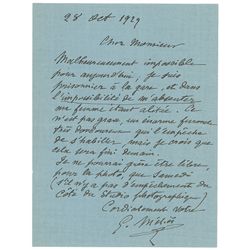 28 Oct 1929
Cher Monsieur
Malheureusement impossible
pour aujourd'hui, je suis
prisonnier à la gare, et dans
l'impossibilité de m'absenter
ma femme étant alitée. Ce
n'est pas grave, un énorme furoncle
très douloureux qui l'empêche
de s'habiller mais je crois que
cela sera fini demain.
Je ne pourrai guère être libre,
pour la photo, que samedi
(s'il n'y a pas d'empêchement du
côté du studio photographique)
Cordialement votre
G. Méliès